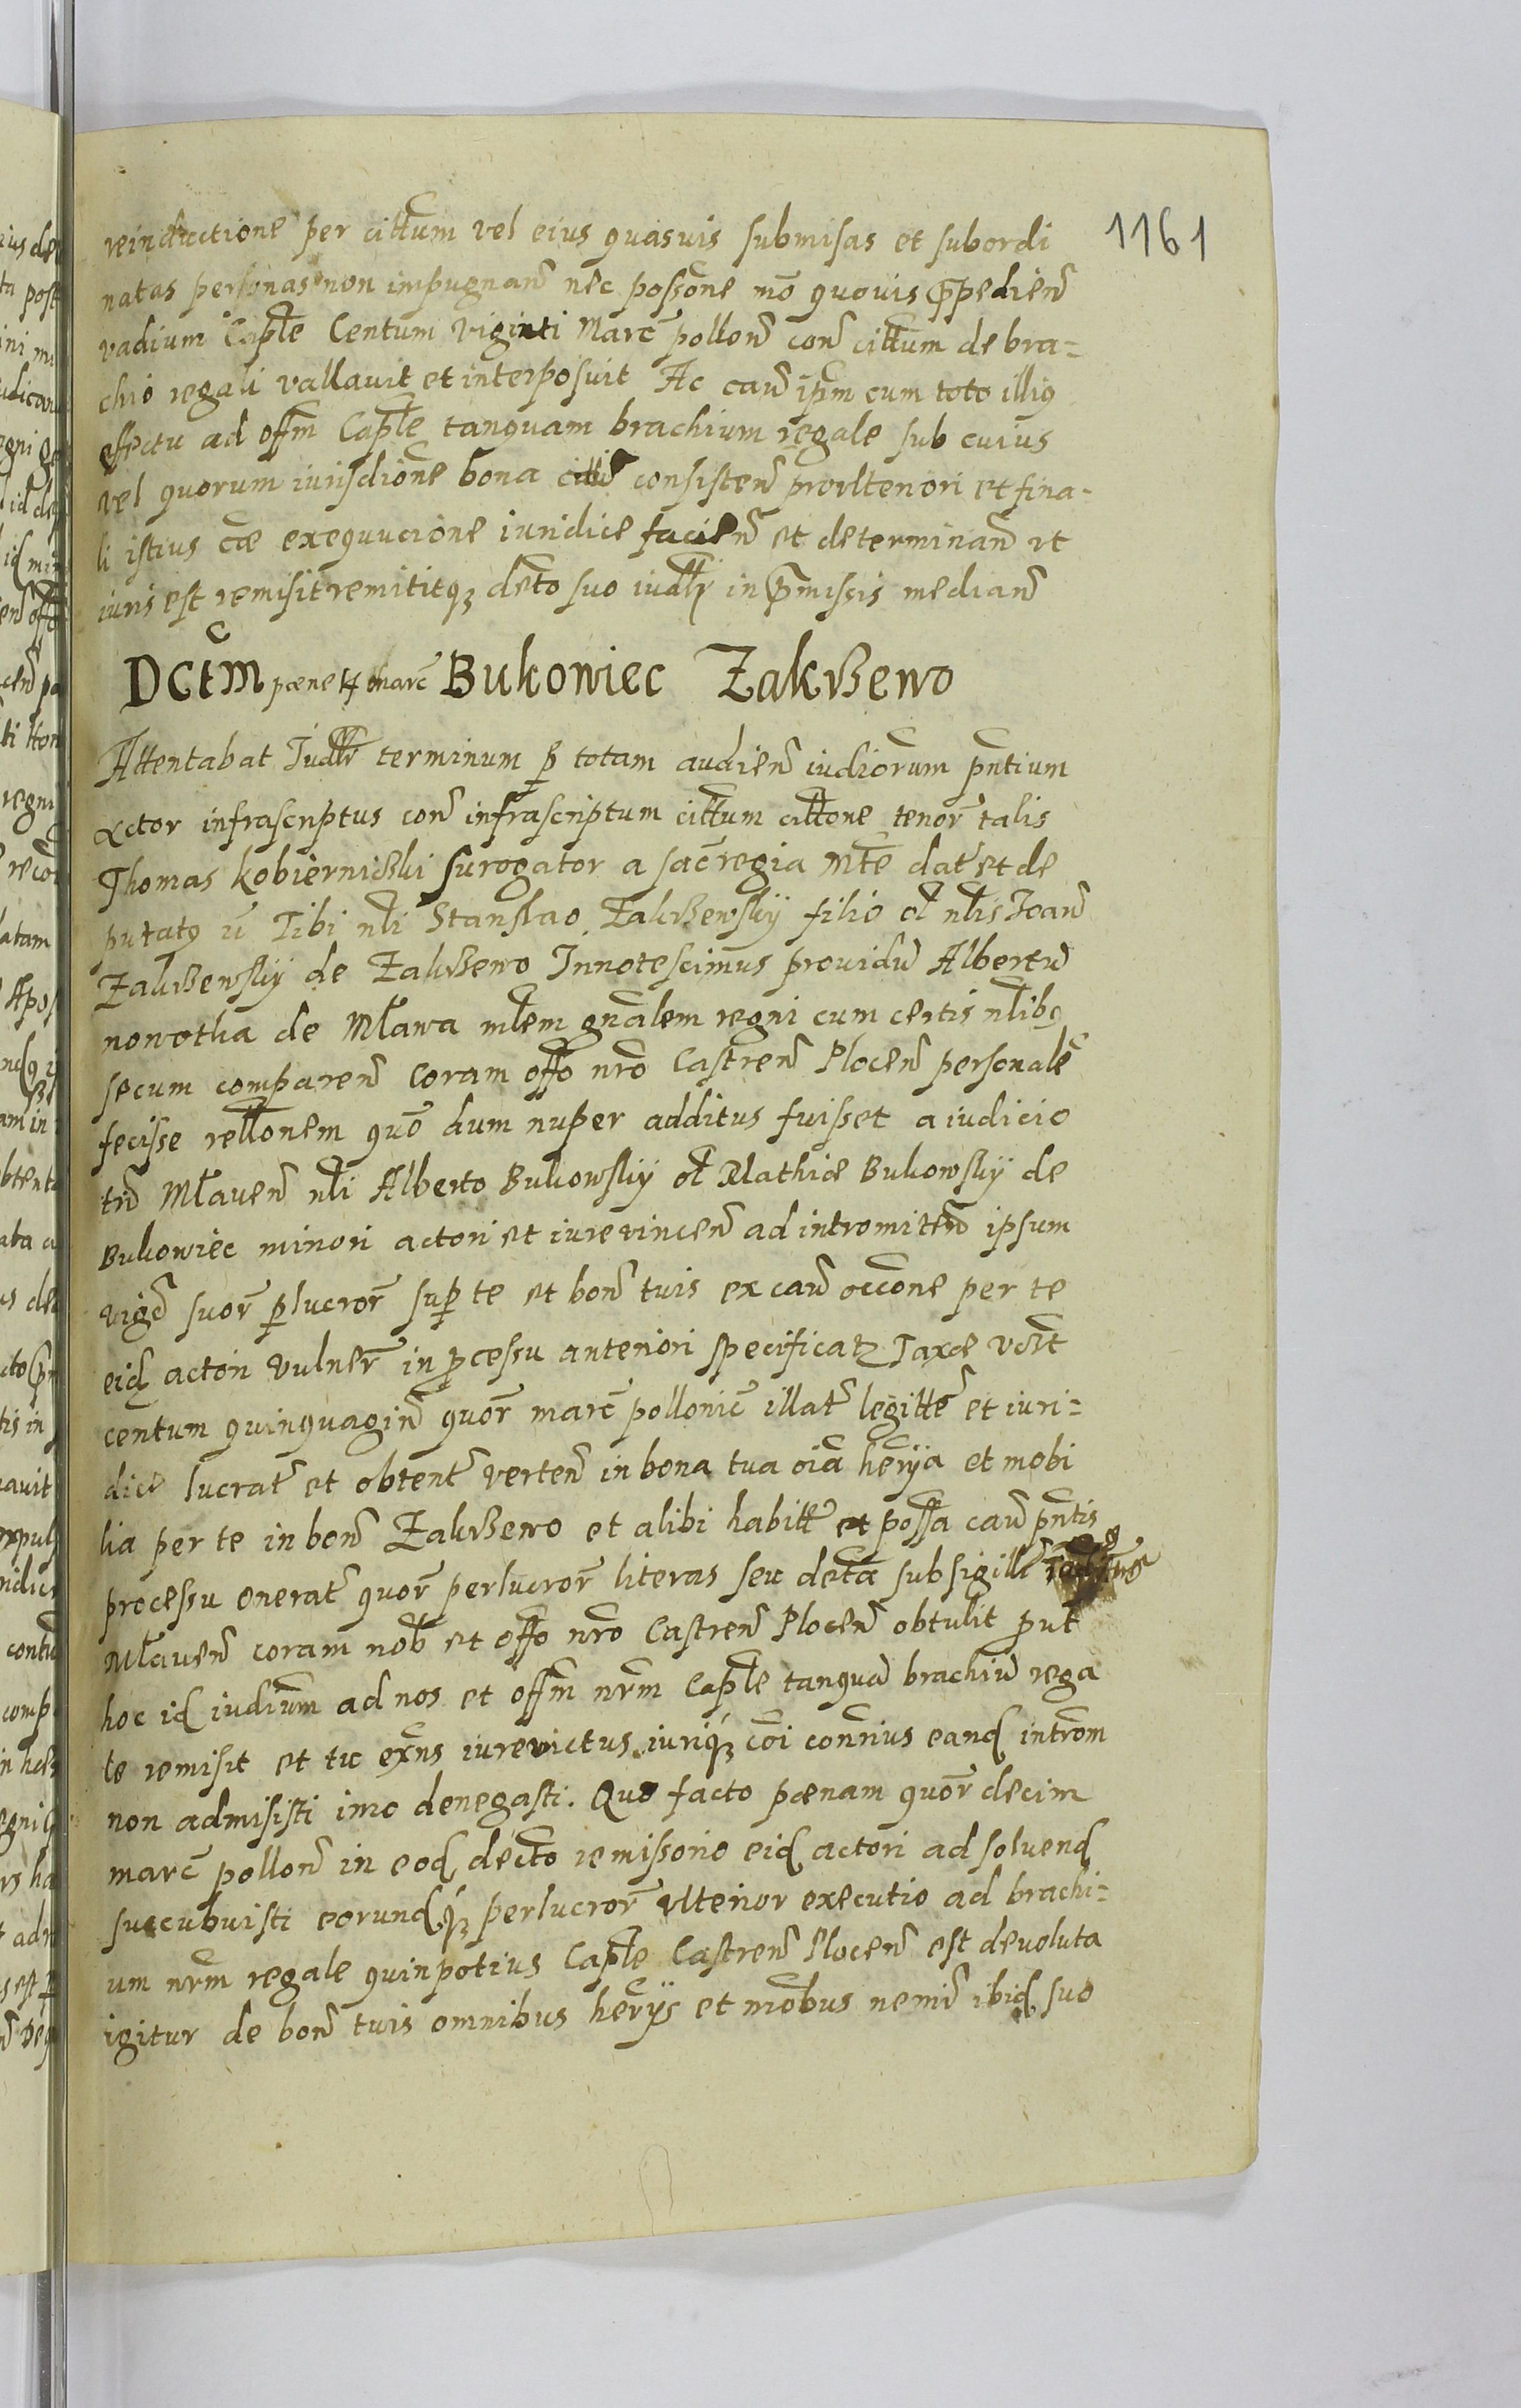 1161
reinductione per cittum vel eius quasuis submisas et subordi
natas personas non impugnan nec possone mo quouis prpedien
vadium Caple Centum viginti Marc pollon con cittum de bra=
chio regali vallauit et interposuit Ac cau ipm cum toto illius
effectu ad offm Caple tanquam brachium regale sub cuius
vel quorum iurisdione bona citti consisten pro vlteriori et fina=
li istius cae exequucione iuridice facien et determinan vt
iuris est remisit remititq deto suo iudlr in prmissis median
DCtM paene 14 marc Bukowiec Zakrzewo
Attentabat Iudlr terminum p totam audien iudiorum pntium
Actor infrascriptus con infrascriptum cittum cittone tenor talis
Thomas kobierniczki surogator a sac regia Mte dat et de
putatq Tibi nli Stanslao Zakrzewsky filio ol nlis Ioan
Zakrzewsky de Zakrzewo Innotescimus prouidu Albertu
nowotka de Mława mlem gnalem regni cum certis nlibq
secum comparen Coram offo nro Castren Plocen personale
fecisse rellonem quo dum nuper additus fuisset a iudicio
trri Mlauen nli Alberto Bukowsky ol Mathiae Bukowsky de
Bukowiec minori actori et iurevincen ad intromitten ipsum
vige suor plucror sup te et bon tuis ex cau occone per te
eid actori vulner in pcessu anteriori specificat Taxae vdlt
centum quinquagin quor marc pollonic illat legitte et iuri=
dice lucrat et obtent verten in bona tua oia herya et mobi
lia per te in bon Zakrzewo et alibi habitt et possa cau pntis
processu onerat quor perlucror literas seu decta sub sigill
Mlauen coram nob et offo nro Castren Plocen obtulit put
hoc id iudium ad nos et offm nrm Caple tanqua brachiu rega
le remisit et tu exns iurevictus iuriq coi conrius eand introm
non admisisti imo denegasti. Quo facto paenam quor decim
marc pollon in eod decto remissorio eid actori ad soluend
succubuisti eorundq perlucror vlterior executio ad brachi=
um nrm regale quinpotius Caple Castren Plocen est deuoluta
igitur de bon tuis omnibus herys et mobus nemi ibid suo